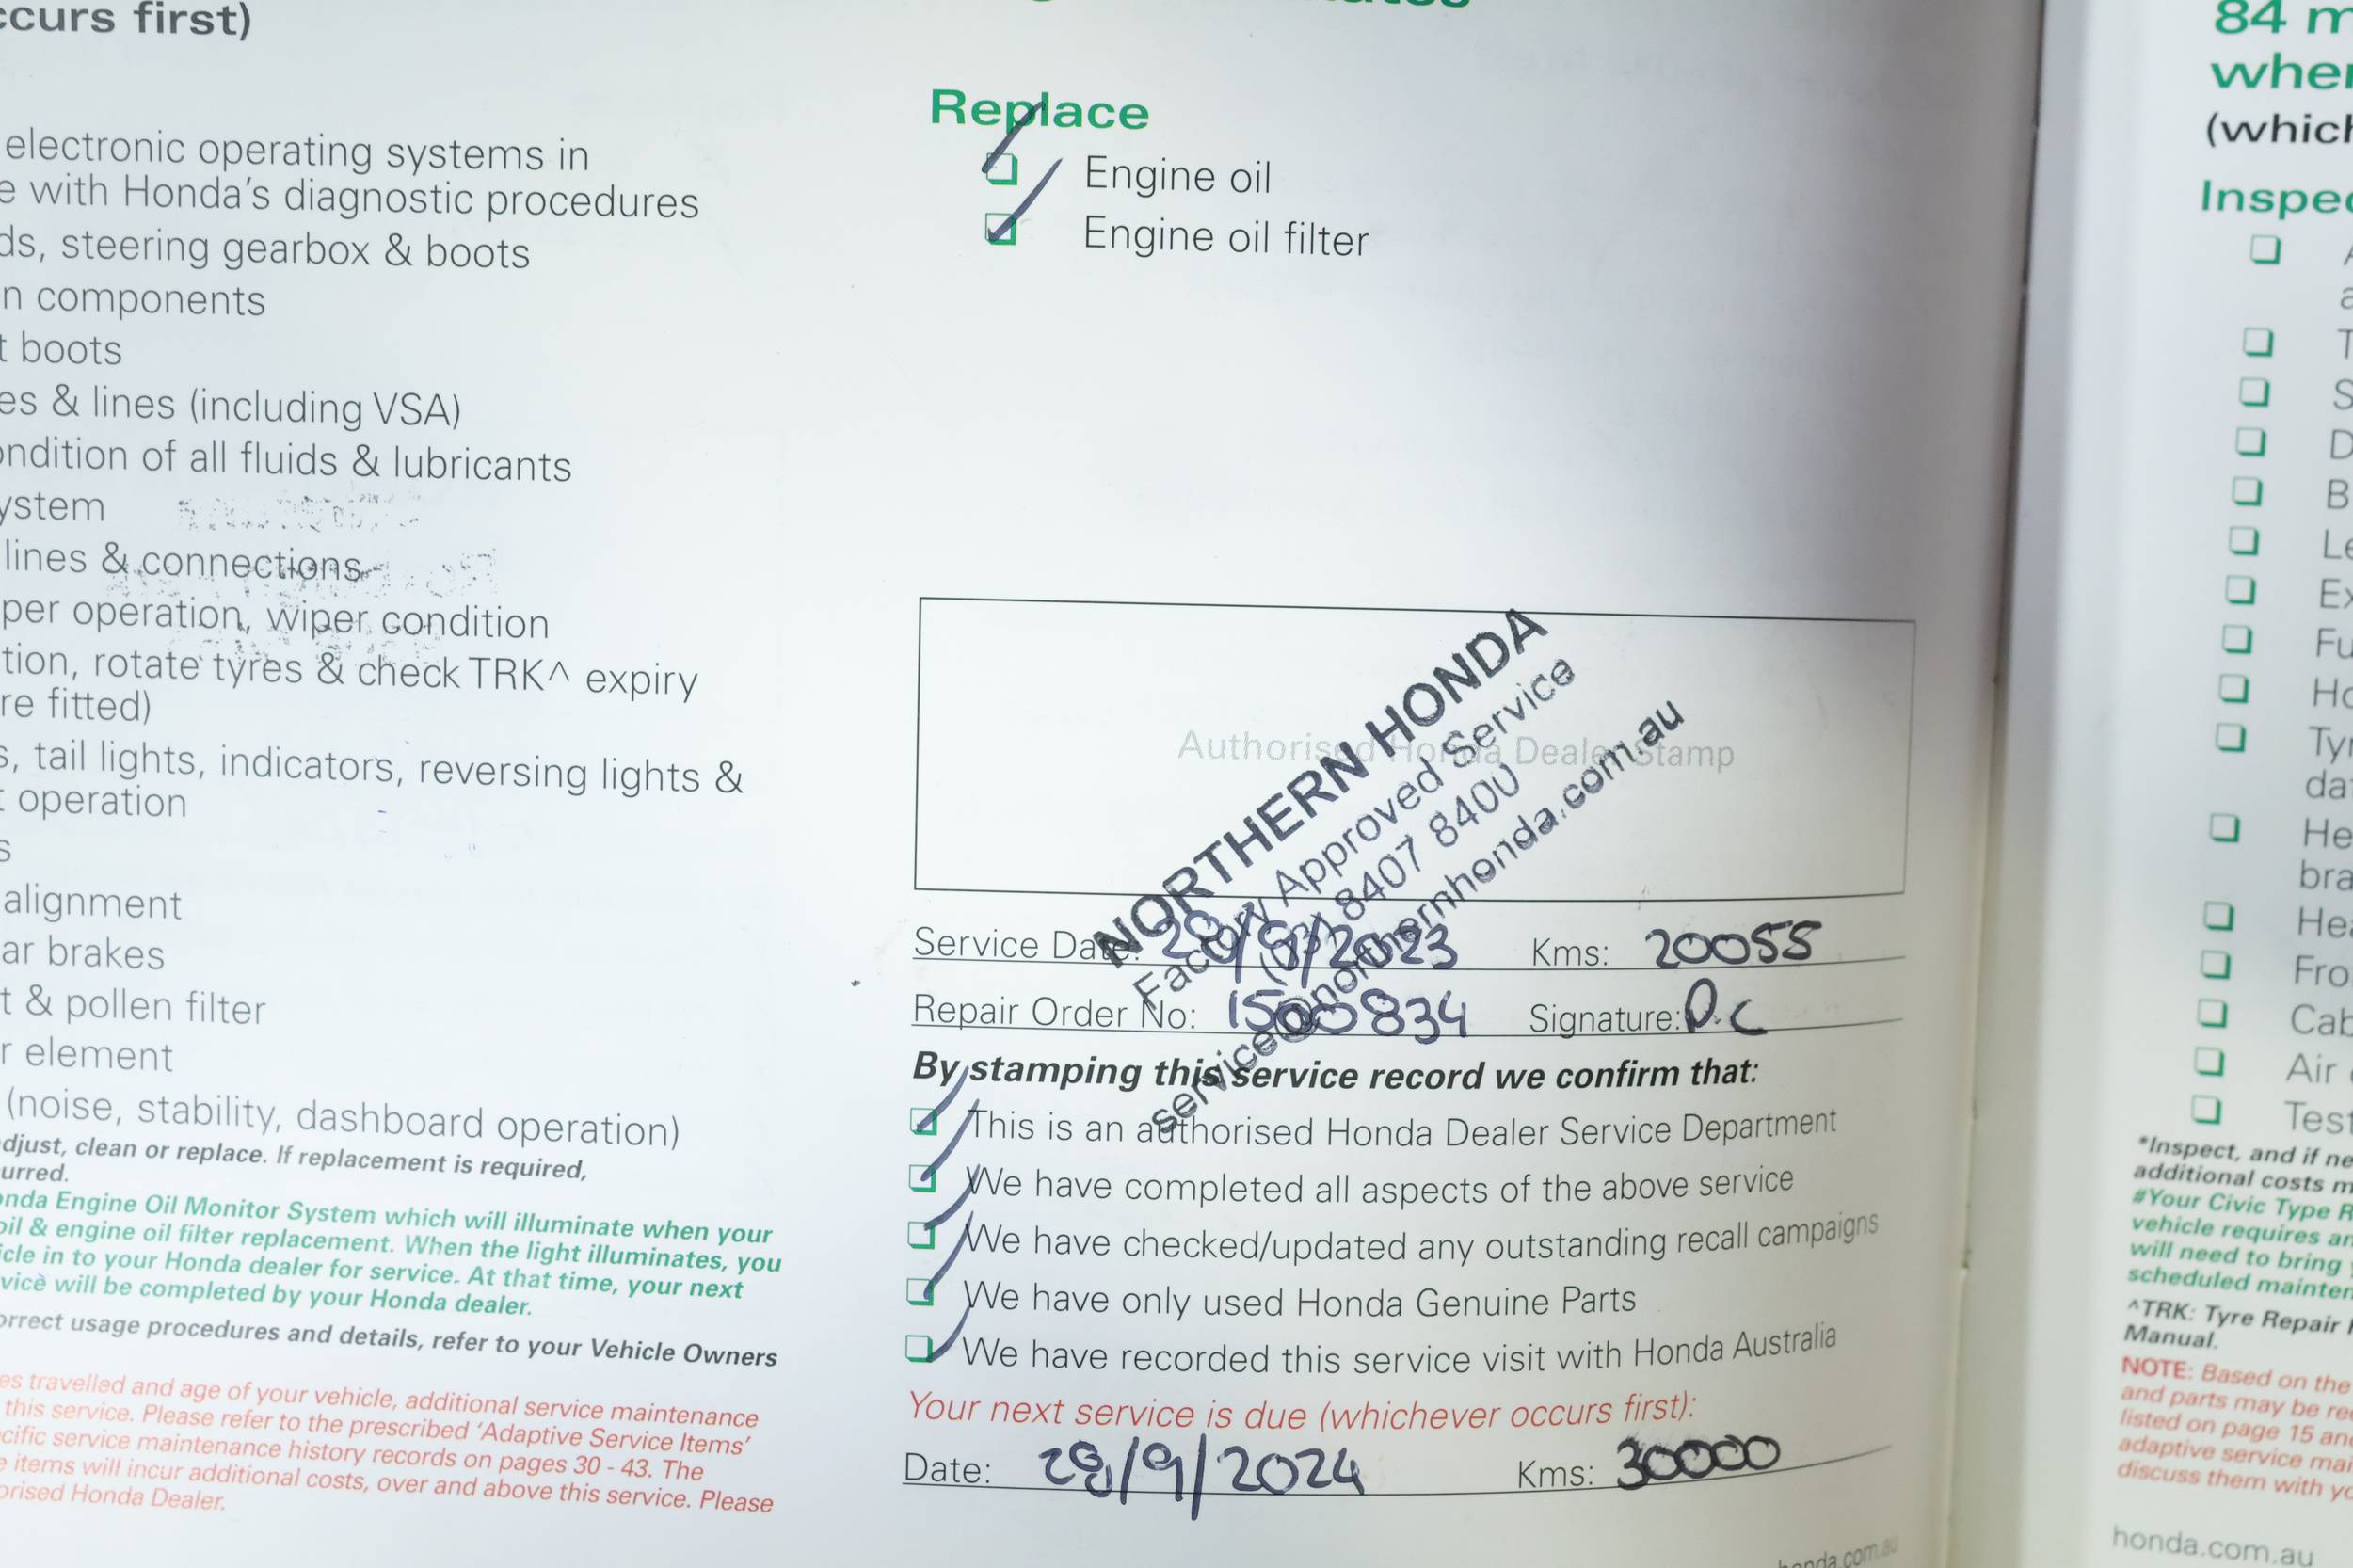 ccurs first)
electronic operating systems in
e with Honda's diagnostic procedures
ds, steering gearbox & boots
n components
t boots
es & lines (including VSA)
ondition of all fluids & lubricants
ystem
lines & connections
per operation, wiper condition
tion, rotate tyres & check TRK^ expiry
re fitted)
s, tail lights, indicators, reversing lights &
t operation
s
alignment
ar brakes
t & pollen filter
r element
(noise, stability, dashboard operation)
djust, clean or replace. If replacement is required,
urred.
onda Engine Oil Monitor System which will illuminate when your
oil & engine oil filter replacement. When the light illuminates, you
icle in to your Honda dealer for service. At that time, your next
vice will be completed by your Honda dealer.
orrect usage procedures and details, refer to your Vehicle Owners
es travelled and age of your vehicle, additional service maintenance
this service. Please refer to the prescribed 'Adaptive Service Items'
cific service maintenance history records on pages 30 - 43. The
e items will incur additional costs, over and above this service. Please
orised Honda Dealer.
Replace
Engine oil
Engine oil filter
Authorised Honda Dealer Stamp
NORTHERN HONDA
Factory Approved Service
8407 8400
service@northernhonda.com.au
Service Date: 28/9/2023 Kms: 20055
Repair Order No: 1500834 Signature: D.C
By stamping this service record we confirm that:
This is an authorised Honda Dealer Service Department
We have completed all aspects of the above service
We have checked/updated any outstanding recall campaigns
We have only used Honda Genuine Parts
We have recorded this service visit with Honda Australia
Your next service is due (whichever occurs first):
Date: 28/9/2024 Kms: 30000
honda.com.au
84 m
when
(which
Inspec
A
a
T
S
D
B
Le
Ex
Fu
Ho
Tyr
dat
He
bra
Hea
Fro
Cab
Air
Test
*Inspect, and if ne
additional costs m
#Your Civic Type R
vehicle requires an
will need to bring y
scheduled mainten
^TRK: Tyre Repair K
Manual.
NOTE: Based on the
and parts may be req
listed on page 15 and
adaptive service mai
discuss them with yo
honda.com.au